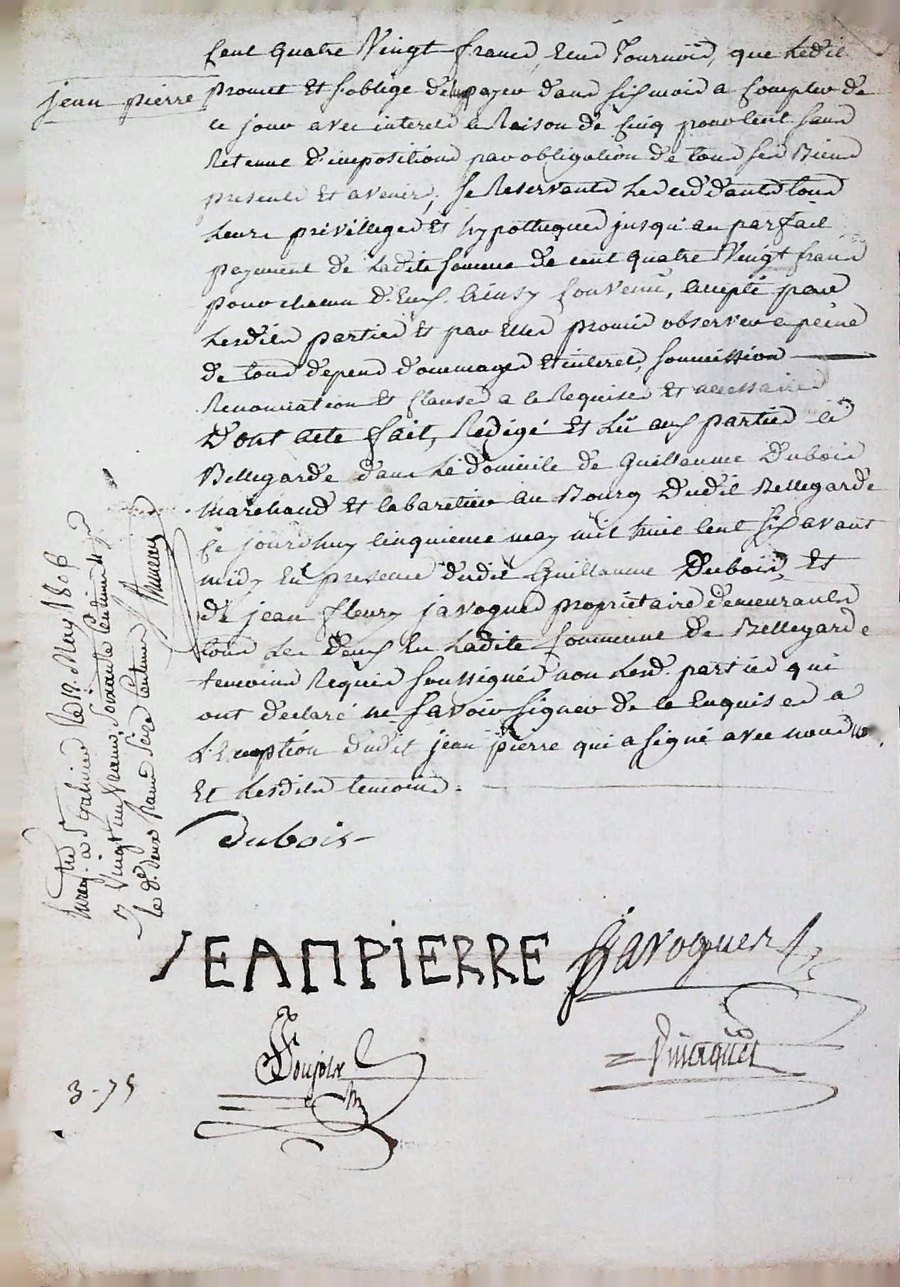 Cent quatre Vingt francs, Eus tournois, que Ledit
jean pierre
promet Et soblige de payer dans six mois a Compter de
ce jour avec interets a Raison de Cinq pour Cent sans
Retenue d'impositions par obligation de tous ses Biens
presents Et avenir, se Reservants Lesd. dants tous
Leurs privilleges Et hypotteques jusqu'au parfait
payement de Ladite somme de cent quatre Vingt francs
pour chacun d'Eux Ainsy Convenu, accepté par
Lesdites parties Et par Elles promis observer a peine
de tous depens dommages Et interets, soumission
Renonciation Et Clauses a ce Requises Et necessaires
Dont acte fait, Redigé Et Lu aux parties à
Bellegarde dans Le domicile de Guillaume Dubois
Marchand Et Cabaretier au Bourg Dudit Bellegarde
Ce jourdhuy Cinquieme may mil huit Cent six avant
midy En presence dudit Guillaume Dubois, Et
de jean fleury javogues propriétaire demeurants
tous Les deux En Ladite Commune de Bellegarde
temoins Requis soussignés non Lesd. parties qui
ont déclaré ne savoir signer de ce Enquises a
L'Exception dudit jean pierre qui a signé avec nous no.
Et Lesdits temoins.
dubois
JEANPIERRE
javogues
3-75
à St galmier le 12 May 1806
Vingt un francs soixante Centimes
le de. deux francs seize Centimes